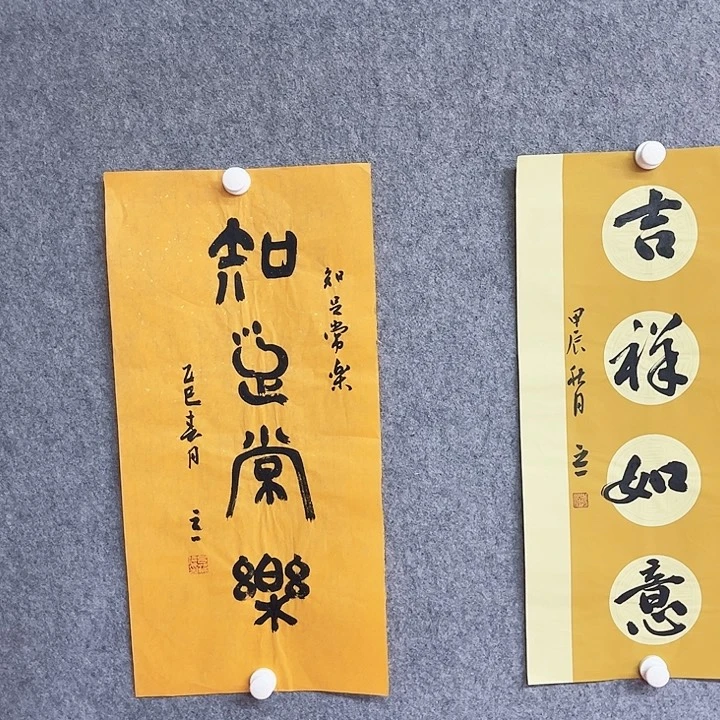 知足常樂
知足常楽
乙巳春月 立一
吉祥如意
甲辰秋月 立一